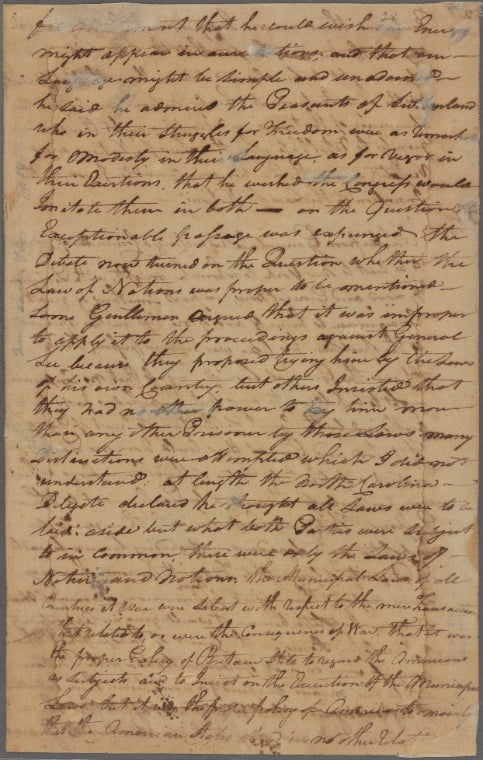 that he could wish Energy
might appear in our Actions, and that our
Language might be simple and unadorned
he said he admired the Peasants of Switzerland
who in their Struggles for Freedom were as remarkable
for Modesty in their Language, as for Vigor in
their Exertions, that he wished the Congress would
Imitate them in both — on the Question
Exceptionable passage was expunged the
Debate now turned on the Question whether the
Law of Nations was proper to be mentioned —
Some Gentlemen argued that it was improper
to apply it to the proceedings against General
Lee because they proposed trying him by the Laws
of his own Country but others Insisted that
they had no other power to try him more
than any other Prisoner by those Laws: many
Distinctions were attempted which I did not
understand. at length the North Carolina —
Delegate declared he thought all Laws were to be
laid aside but what both Parties were Subject
to in Common, there were only the Laws of
Nature and Nations, the Municipal Laws of all
Countries at War were Silent with respect to the mere Transactions
that related to or were the Consequences of War. That it was
the proper Policy of Britain State to regard the Americans
as Subjects and to Insist on the Execution of the Municipal
Laws but it was the policy of America to
that the American States in no other